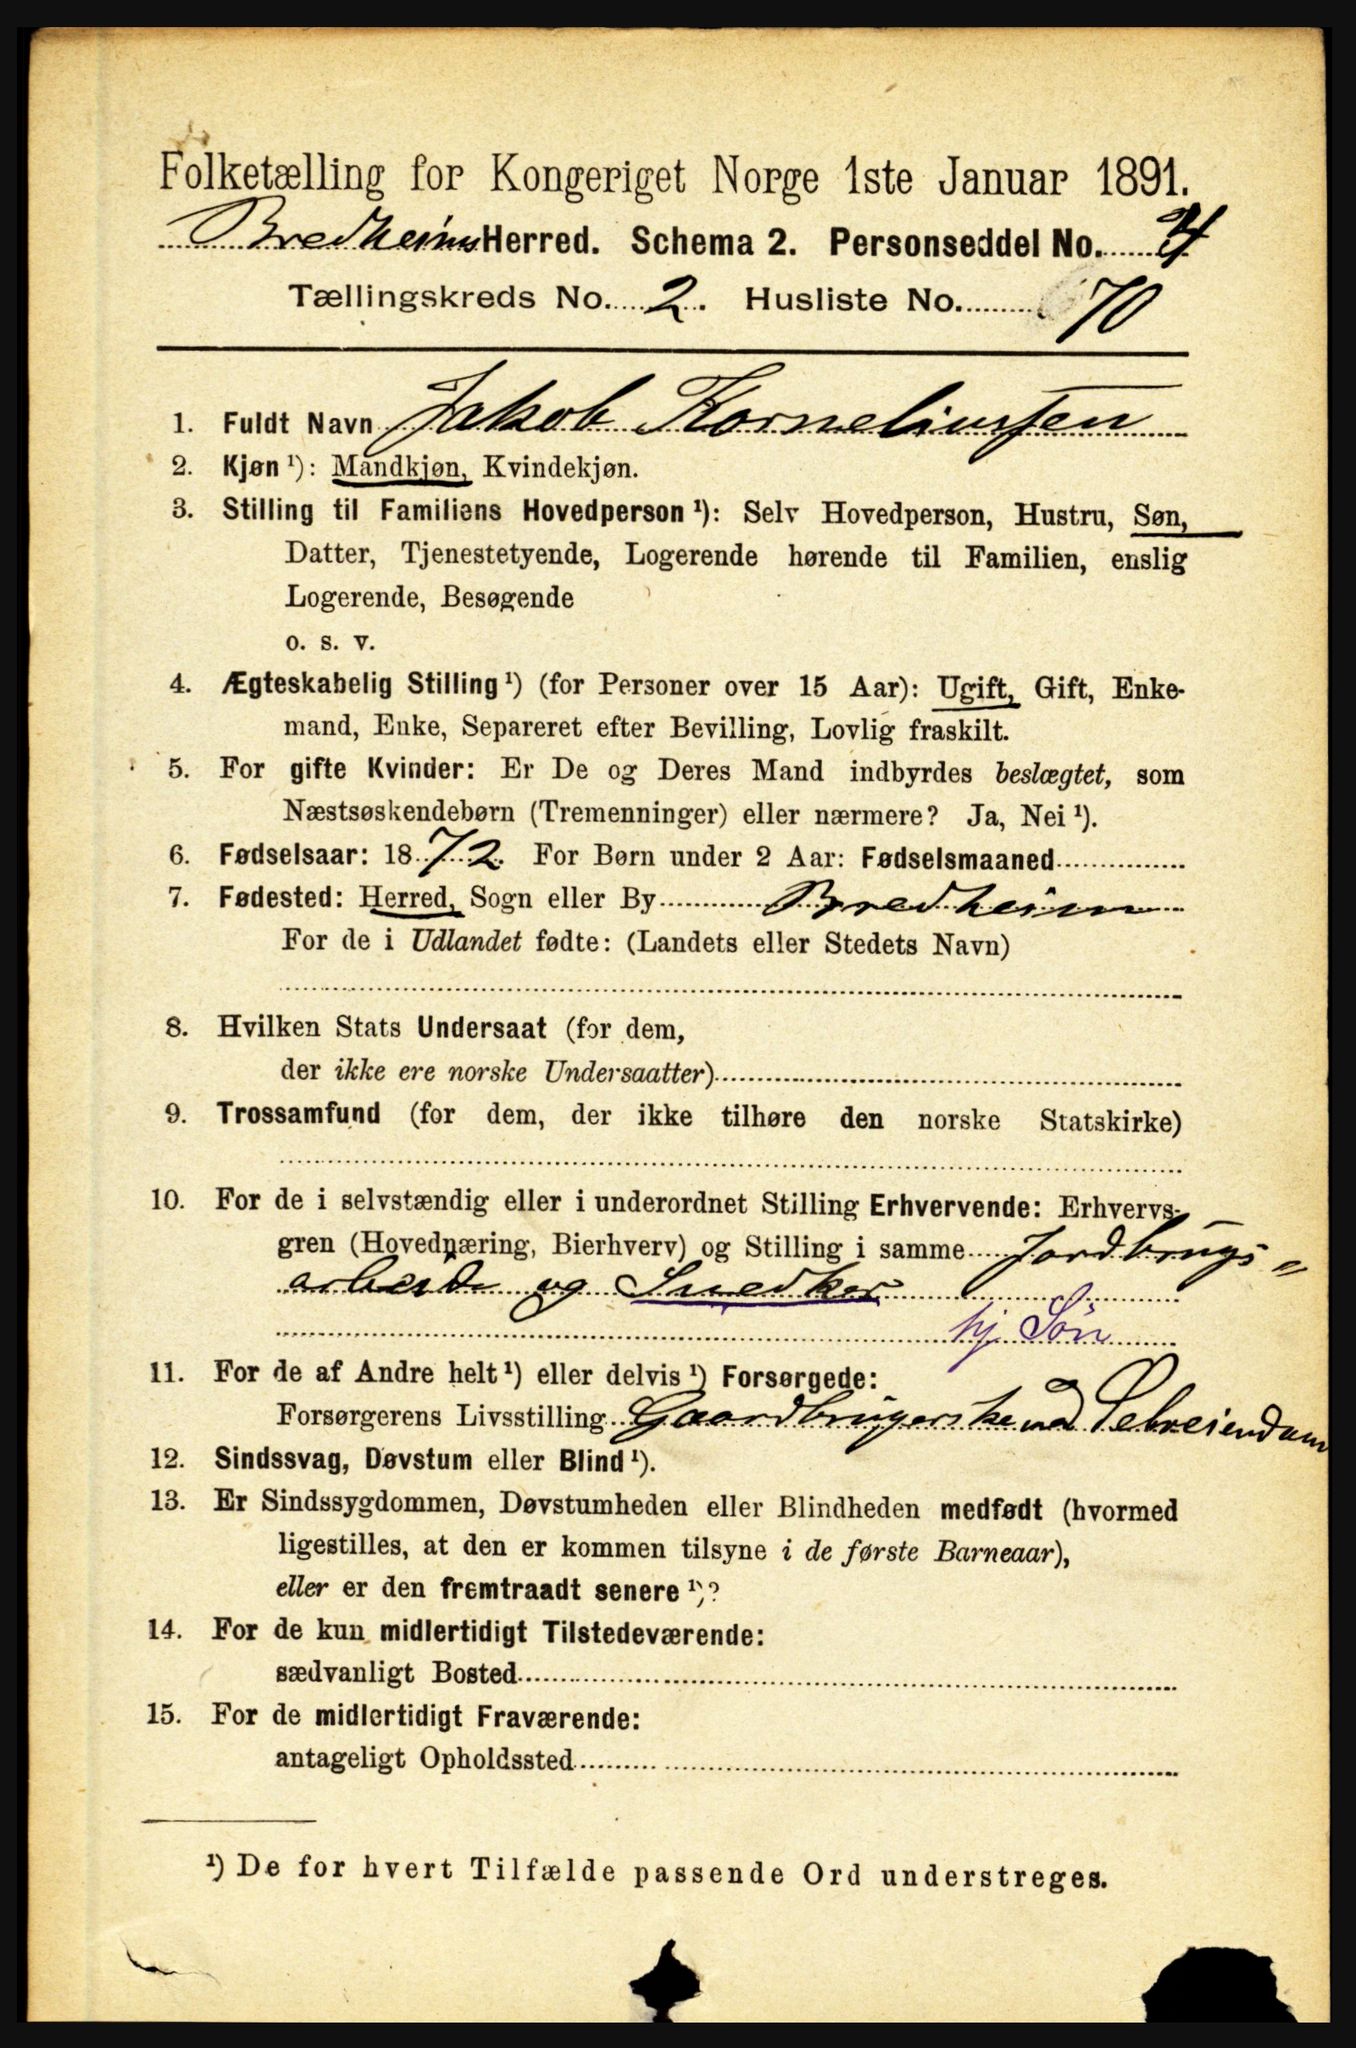 Folketælling for Kongeriget Norge 1ste Januar 1891.
Bredheims Herred. Schema 2. Personseddel No. 4
Tællingskreds No. 2. Husliste No. 70
1. Fuldt Navn Jakob Korneliussen
2. Kjøn ¹): Mandkjøn, Kvindekjøn.
3. Stilling til Familiens Hovedperson ¹): Selv Hovedperson, Hustru, Søn,
Datter, Tjenestetyende, Logerende hørende til Familien, enslig
Logerende, Besøgende
o. s. v.
4. Ægteskabelig Stilling ¹) (for Personer over 15 Aar): Ugift, Gift, Enke-
mand, Enke, Separeret efter Bevilling, Lovlig fraskilt.
5. For gifte Kvinder: Er De og Deres Mand indbyrdes beslægtet, som
Næstsøskendebørn (Tremenninger) eller nærmere? Ja, Nei ¹).
6. Fødselsaar: 1872. For Børn under 2 Aar: Fødselsmaaned
7. Fødested: Herred, Sogn eller By Bredheim
For de i Udlandet fødte: (Landets eller Stedets Navn)
8. Hvilken Stats Undersaat (for dem,
der ikke ere norske Undersaatter)
9. Trossamfund (for dem, der ikke tilhøre den norske Statskirke)
10. For de i selvstændig eller i underordnet Stilling Erhvervende: Erhvervs-
gren (Hovednæring, Bierhverv) og Stilling i samme Jordbrugs=
arbeide og Snedker
hj Søn
11. For de af Andre helt ¹) eller delvis ¹) Forsørgede:
Forsørgerens Livsstilling Gaardbrugerske med Selveiendom
12. Sindssvag, Døvstum eller Blind ¹).
13. Er Sindssygdommen, Døvstumheden eller Blindheden medfødt (hvormed
ligestilles, at den er kommen tilsyne i de første Barneaar),
eller er den fremtraadt senere ¹)?
14. For de kun midlertidigt Tilstedeværende:
sædvanligt Bosted
15. For de midlertidigt Fraværende:
antageligt Opholdssted
¹) De for hvert Tilfælde passende Ord understreges.